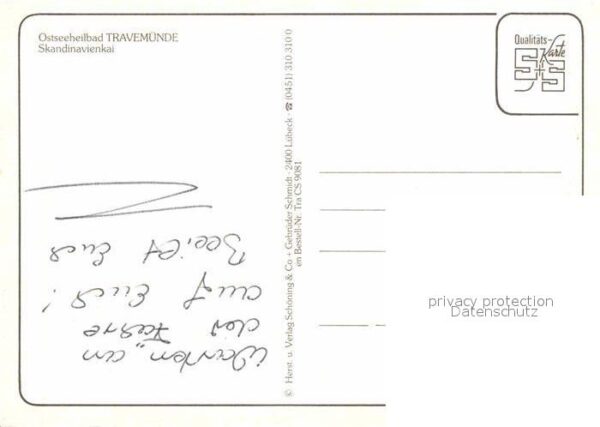 Ostseeheilbad TRAVEMÜNDE
Skandinavienkai
Qualitäts-
Karte
S+S
© Herst. u. Verlag Schöning & Co + Gebrüder Schmidt · 2400 Lübeck · ☎ (0451) 310 310-0
en Bestell-Nr. Tra CS 9081
Warten „an
der Fähre
auf Euch!
Beeilt Euch
privacy protection
Datenschutz